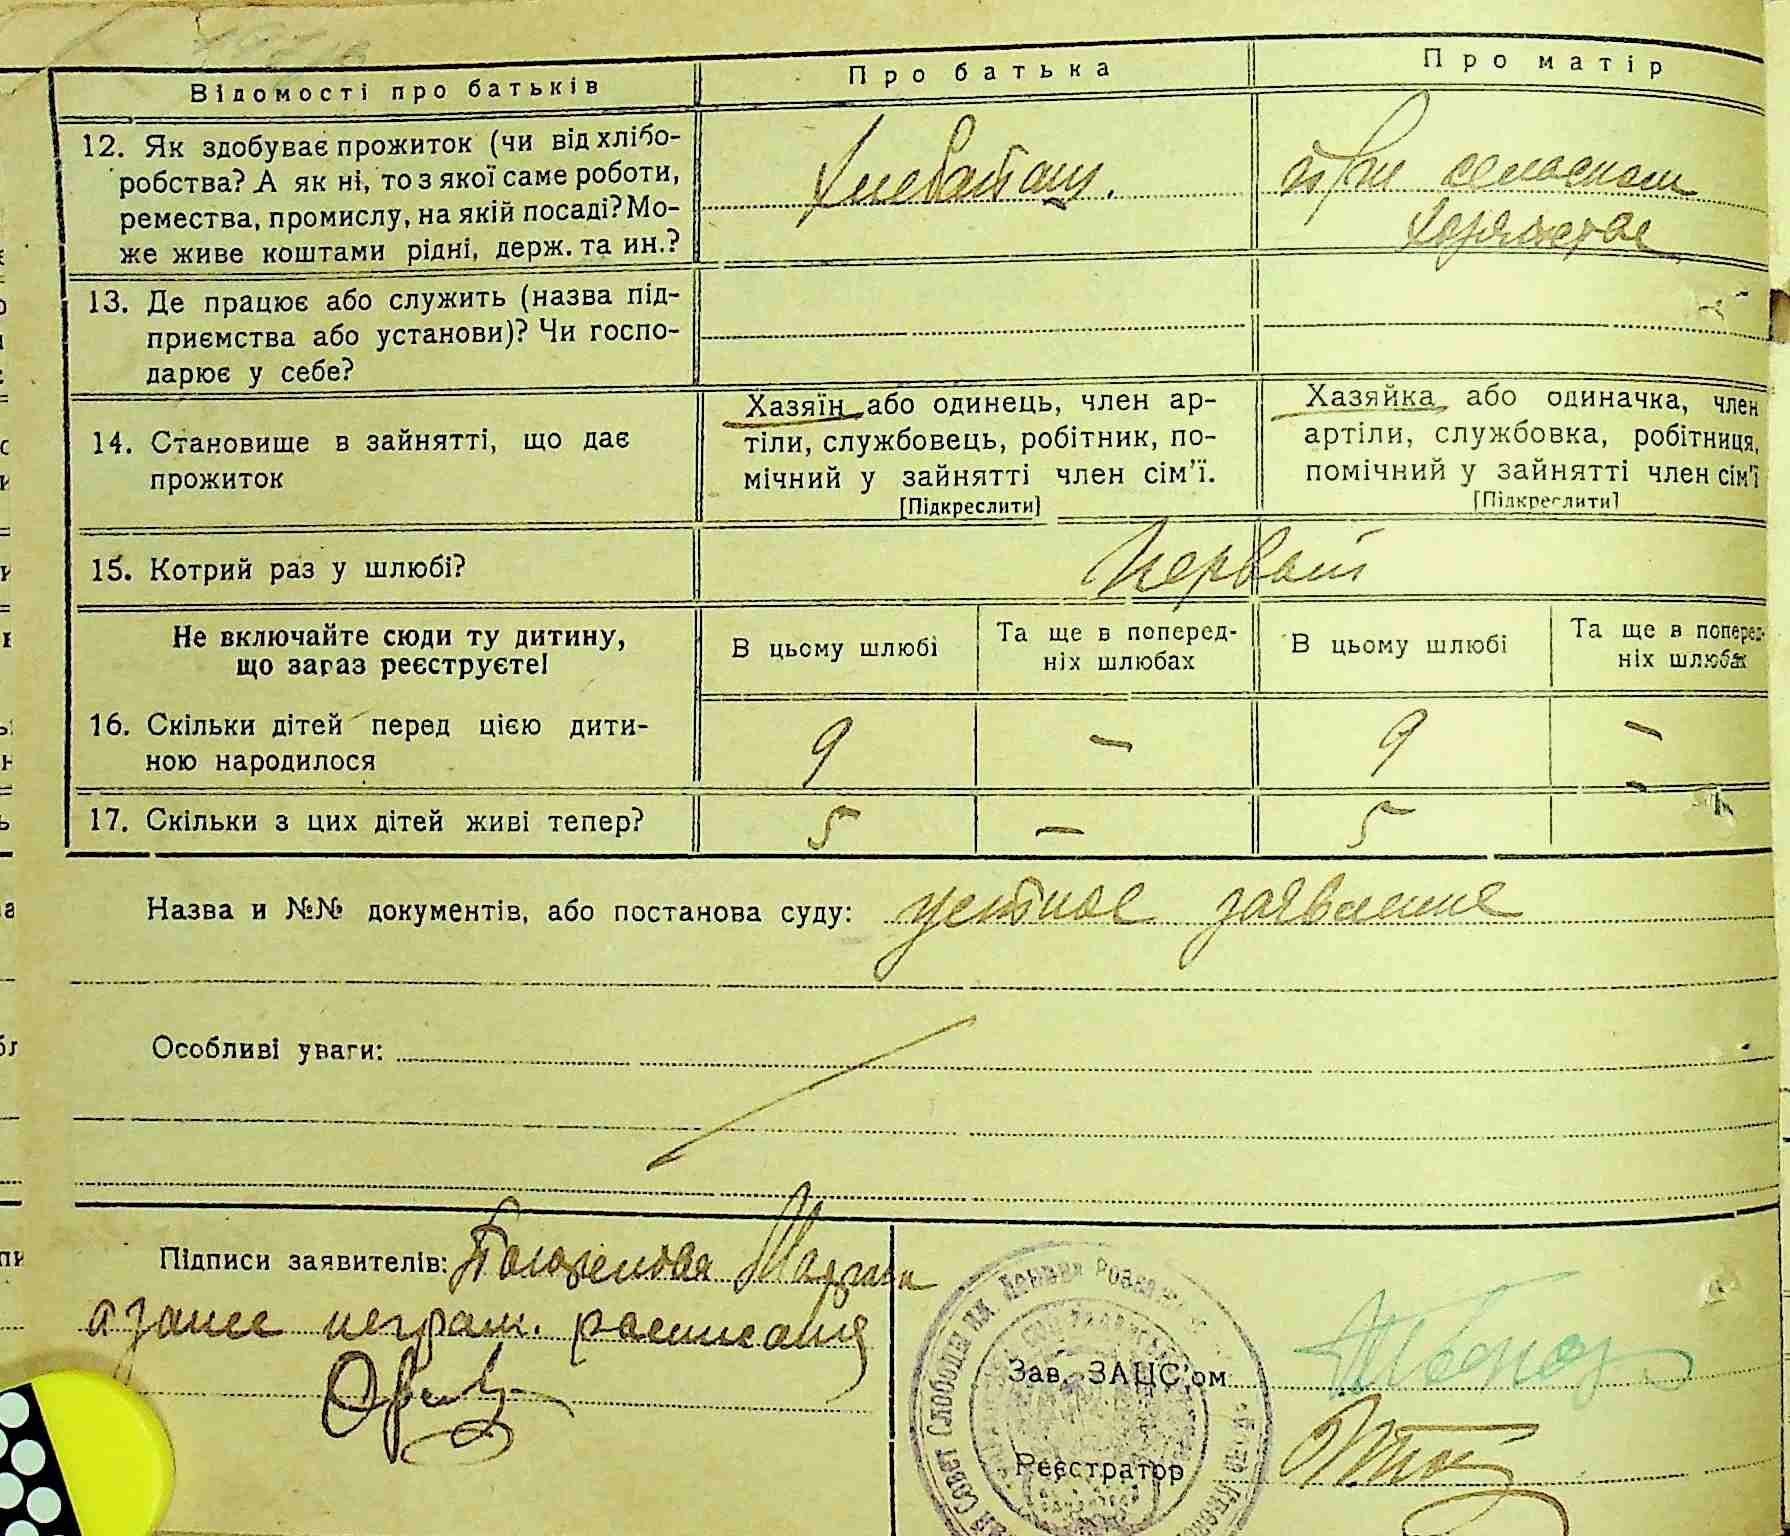 Відомості про батьків
Про батька
Про матір
12. Як здобуває прожиток (чи від хлібо-
робства? А як ні, то з якої саме роботи,
ремества, промислу, на якій посаді? Мо-
же живе коштами рідні, держ. та ин.?
Хлебопаш.
при сельском
хозяйстве
13. Де працює або служить (назва під-
приємства або установи)? Чи госпо-
дарює у себе?
14. Становище в зайнятті, що дає
прожиток
Хазяїн або одинець, член ар-
тіли, службовець, робітник, по-
мічний у зайнятті член сім'ї.
[Підкреслити]
Хазяйка або одиначка, член
артіли, службовка, робітниця,
помічний у зайнятті член сім'ї
[Підкреслити]
15. Котрий раз у шлюбі?
Первый
Не включайте сюди ту дитину,
що зараз реєструєте!
В цьому шлюбі
Та ще в поперед-
ніх шлюбах
В цьому шлюбі
Та ще в поперед-
ніх шлюбах
16. Скільки дітей перед цією дити-
ною народилося
9 – 9 –
17. Скільки з цих дітей живі тепер?
5 – 5 –
Назва и №№ документів, або постанова суду: устное заявление
Особливі уваги:
Підписи заявителів:
а за нее неграм. расписался
Зав. ЗАЦС'ом
Реєстратор
Совет Слободы им. Демьяна